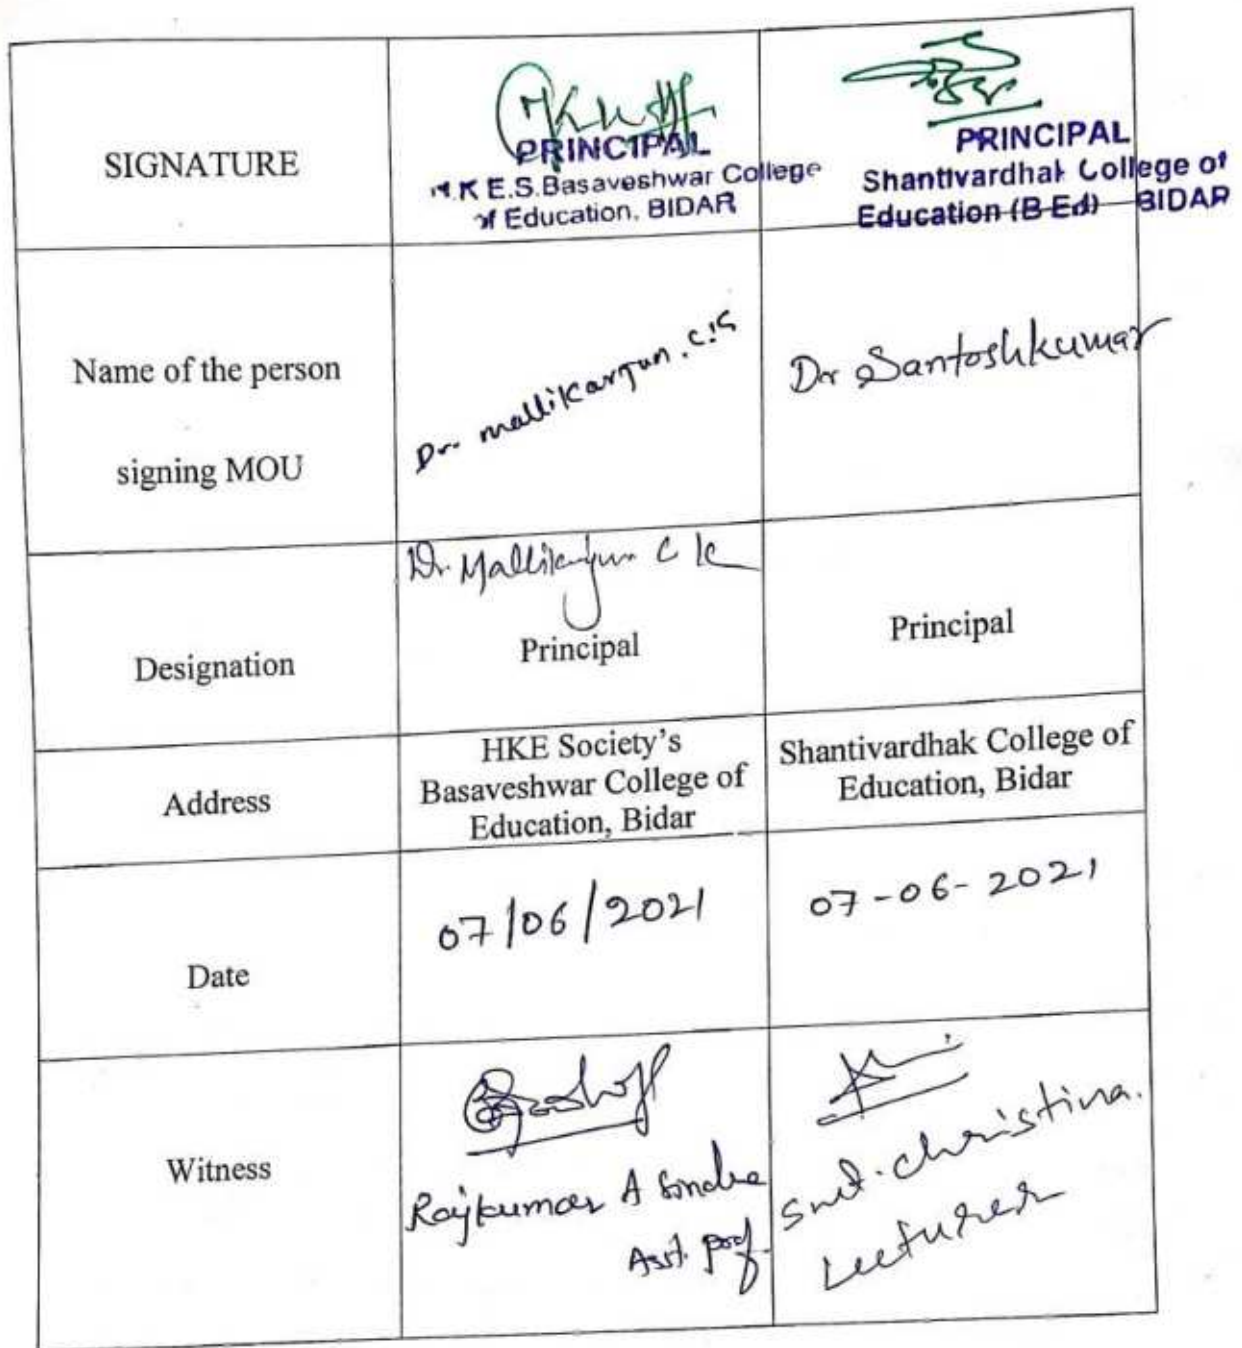 SIGNATURE
PRINCIPAL
H.K E.S.Basaveshwar College
of Education, BIDAR
PRINCIPAL
Shantivardhak College of
Education (B Ed) BIDAR
Name of the person
signing MOU
Dr. mallikarjun.
Dr Santoshkumar
Designation
Dr. Mallikarjun C K
Principal
Principal
Address
HKE Society's
Basaveshwar College of
Education, Bidar
Shantivardhak College of
Education, Bidar
Date
07/06/2021
07-06-2021
Witness
Rajkumar A
Asst. prof
Smt. Christina.
Lecturer